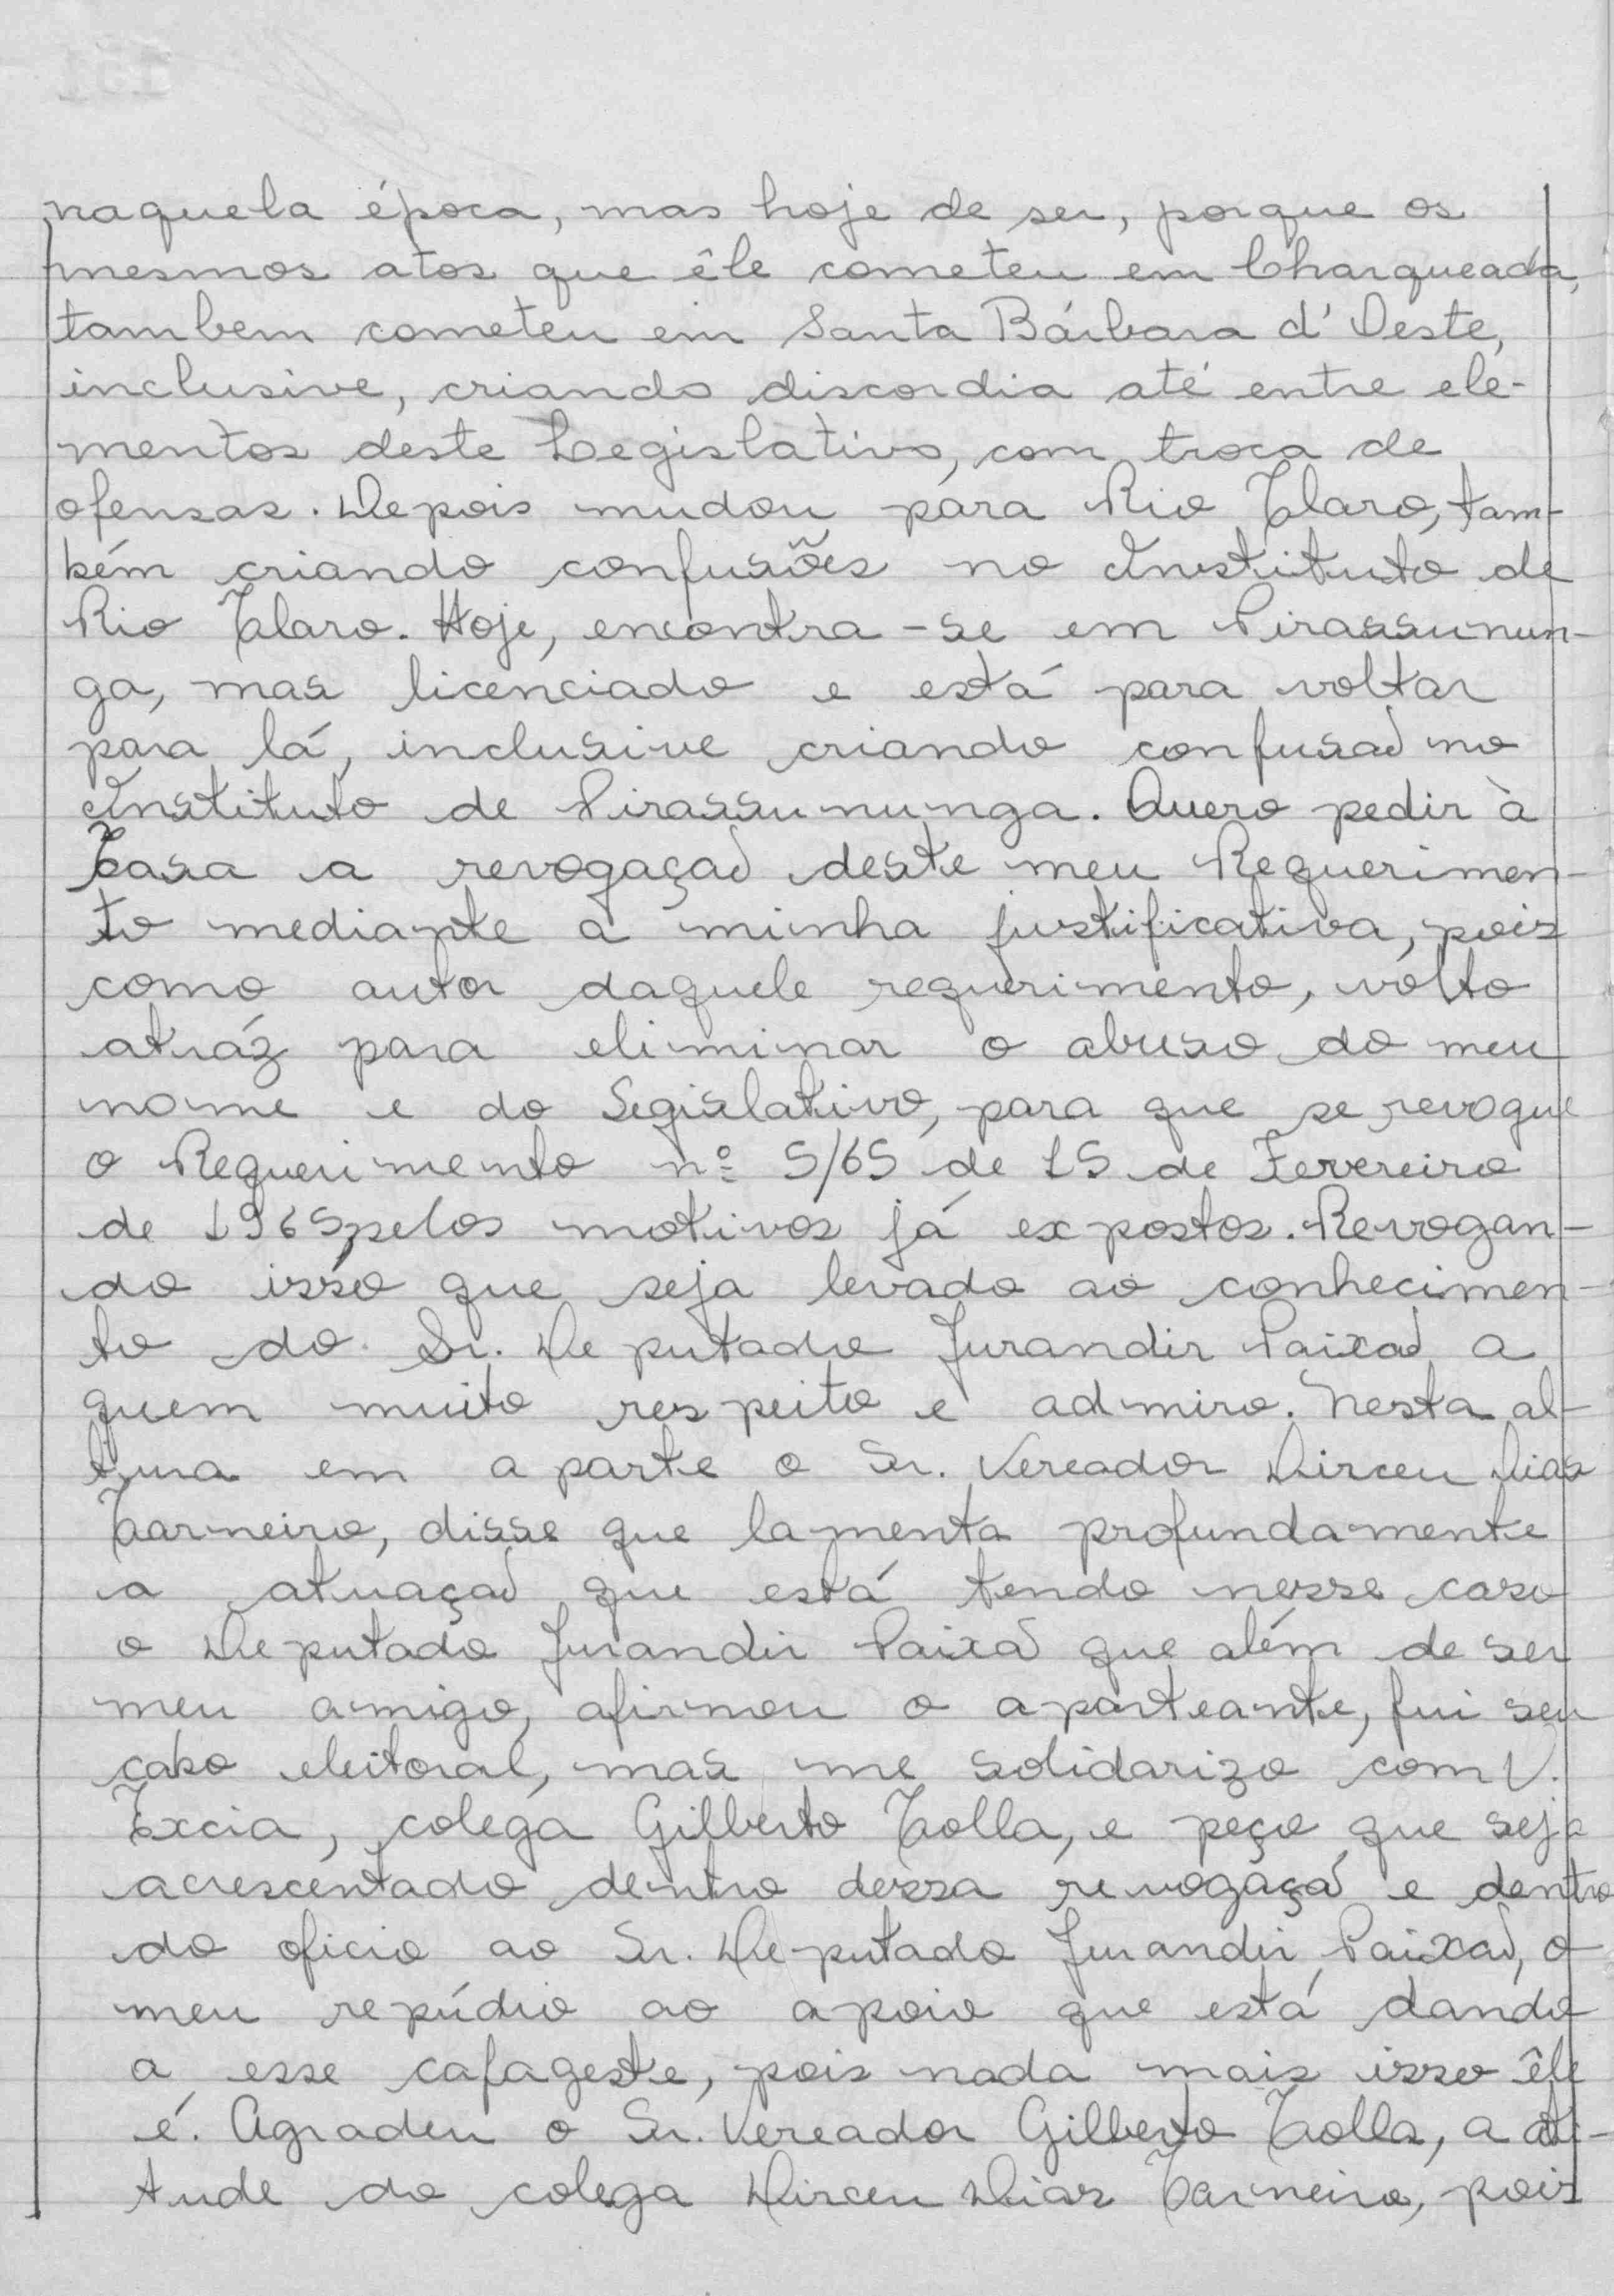 naquela época, mas hoje de ser, porque os
mesmos atos que êle cometeu em Charqueada,
tambem cometeu em Santa Bárbara d'Oeste,
inclusive, criando discordia até entre ele-
mentos deste Legislativo, com troca de
ofensas. Depois mudou para Rio Claro, tam-
bém criando confusões no Instituto de
Rio Claro. Hoje, encontra-se em Pirassunun-
ga, mas licenciado e está para voltar
para lá, inclusive criando confusão no
Instituto de Pirassununga. Quero pedir à
Casa a revogação deste meu Requerimen-
to mediante a minha justificativa, pois
como autor daquele requerimento, volto
atráz para eliminar o abuso do meu
nome e do Legislativo, para que se revogue
o Requerimento nº 5/65 de 15 de Fevereiro
de 1965, pelos motivos já expostos. Revogan-
do isso que seja levado ao conhecimen-
to do Sr. Deputado Jurandir Paixão a
quem muito respeito e admiro. Nesta al-
tura em aparte o Sr. Vereador Dirceu Dias
Carneiro, disse que lamenta profundamente
a atuação que está tendo nesse caso
o Deputado Jurandir Paixão que além de ser
meu amigo, afirmou o aparteante, fui seu
cabo eleitoral, mas me solidarizo com V.
Excia, colega Gilberto Colla, e peço que seja
acrescentado dentro dessa revogação e dentro
do oficio ao Sr. Deputado Jurandir Paixão, o
meu repúdio ao apoio que está dando
a esse cafageste, pois nada mais isso êle
é. Agradeu o Sr. Vereador Gilberto Colla, a ati-
tude do colega Dirceu Dias Carneiro, pois